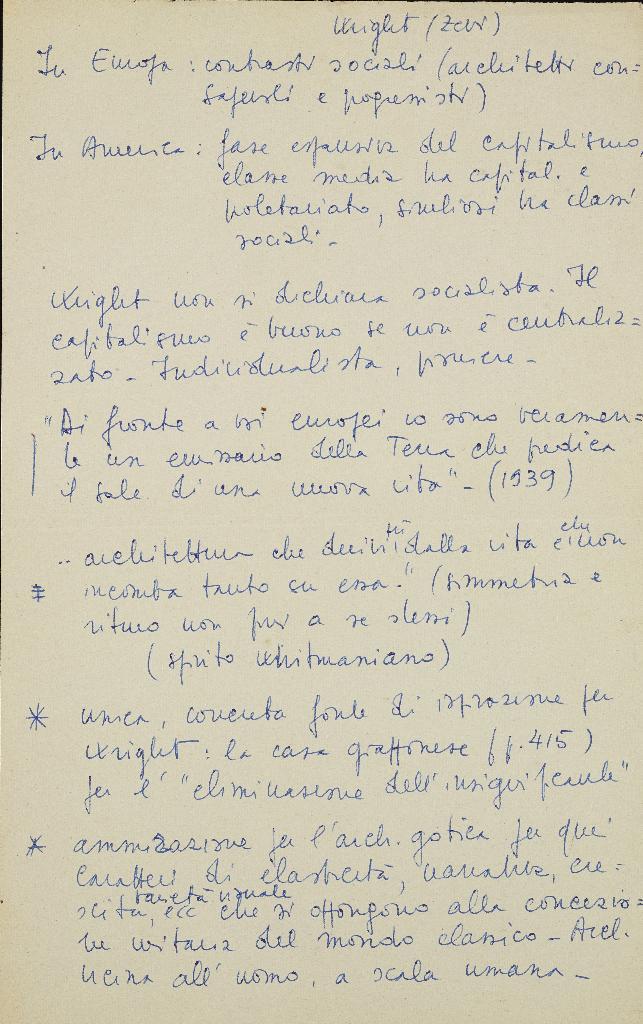 Wright (Zevi)
In Europa: contrasti sociali (architetti con=
sapevoli e progressisti)
In America: fase espansiva del capitalismo,
classe media tra capital. e
proletariato, simbiosi tra classi
sociali -
Wright non si dichiara socialista. Il
capitalismo è buono se non è centraliz=
zato - Individualista, pioniere -
"Di fronte a voi europei io sono veramen=
te un emissario della Terra che predica
il sale di una nuova vita" - (1939)
.. architettura che derivi dalla vita e che non
incomba tanto su essa." (simmetria e
ritmo non per a se stessi)
(spirito whitmaniano)
* unica, concreta fonte di ispirazione per
Wright: la casa giapponese (p. 415)
per l' "eliminazione dell'insignificante"
* ammirazione per l'arch. gotica per quei
caratteri di elasticità, narrativa, cre=
scita, varietà visuale ecc che si oppongono alla concezio=
ne unitaria del mondo classico - Arch.
vicina all'uomo, a scala umana -